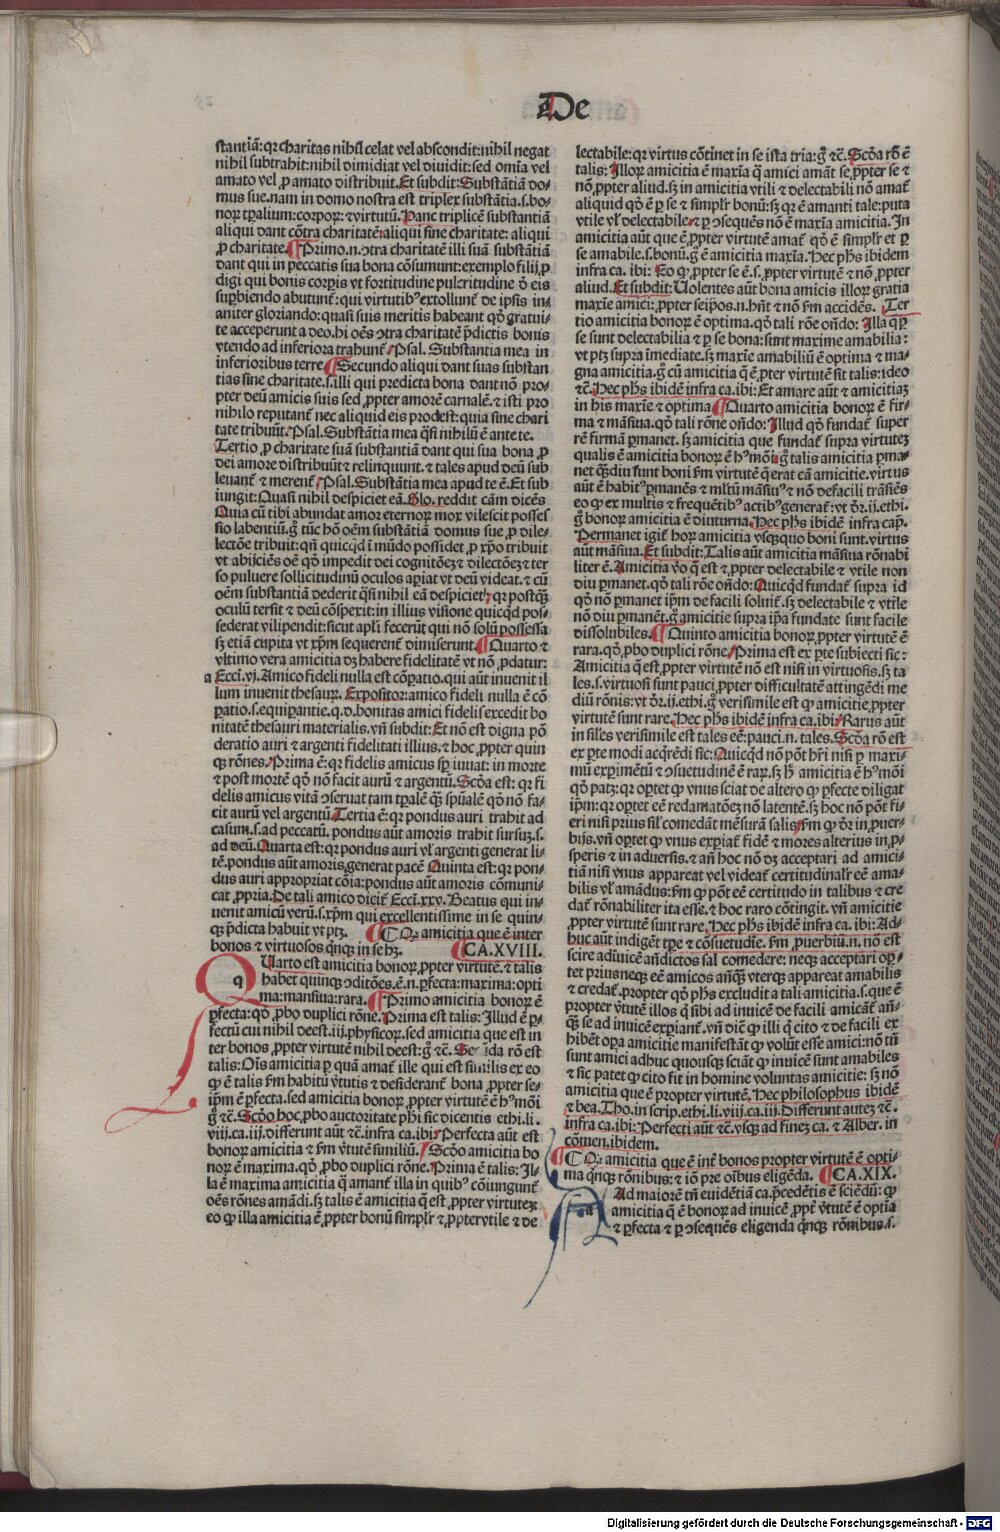 De
stantiā: qr charitas nihil celat vel abscondit: nihil negat
nihil subtrahit: nihil dimidiat vel diuidit: sed omīa vel
amato vel ꝓ amato distribuit. Et subdit: Substātiā do-
mus sue. nam in domo nostra est triplex substātia. s. bo-
noꝝ tꝑalium: corꝑoꝝ: ⁊ virtutū. Hanc triplicē substantiā
aliqui dant cōtra charitatē aliqui sine charitate: aliqui
ꝓ charitate. ¶ Primo. n. ↄtra charitatē illi suā substātiā
dant qui in peccatis sua bona cōsumunt: exemplo filij ꝓ
digi qui bonis corꝑis vt fortitudine pulcritudine ⁊ē eis
suꝑbiendo abutunt̄: qui virtutibꝰ extollunt̄ de ipsis in-
aniter gloriando: quasi suis meritis habeant qď gratui-
te acceperunt a deo. hi oēs ↄtra charitatē p̄dictis bonis
vtendo ad inferiora trahunt̄. Psal. Substantia mea in
inferioribus terre ¶ Secundo aliqui dant suas substan
tias sine charitate. s. illi qui predicta bona dant nō pro-
pter deū amicis suis sed ꝓpter amorē carnalē. ⁊ isti pro
nihilo reputant̄ nec aliquid eis prodest: quia sine chari
tate tribuūt. Psal. Substātia mea q̄si nihilū ē ante te.
Tertio ꝓ charitate suā substantiā dant qui sua bona ꝓ
dei amore distribuūt ⁊ relinquunt. ⁊ tales apud deū sub
leuant̄ ⁊ merent̄. Psal. Substātia mea apud te ē. Et sub
iungit: Quasi nihil despiciet eā. Glo. reddit cām dicēs
Quia cū tibi abundat amor eternoꝝ mox vilescit posses
sio labentiū. g̊ tūc hō oēm substātiā domus sue ꝓ dile-
lectōe tribuit: qn̄ quicq̄d i mūdo possidet ꝓ xp̄o tribuit
vt abijciēs oē qď impedit dei cognitōeꝫ ⁊ dilectōeꝫ ⁊ ter
so puluere sollicitudinū oculos aꝑiat vt deū videat. ⁊ cū
oēm substantiā dederit q̄si nihil eā despiciet: qr postq̄ꝫ
oculū tersit ⁊ deū cōspexit: in illius visione quicq̄d pos-
sederat vilipendit: sicut apl̄i fecerūt qui nō solū possessa
sꝫ etiā cupita vt xp̄m sequerent̄ dimiserunt. ¶ Quarto ⁊
vltimo vera amicitia dꝫ habere fidelitatē vt nō ꝓdatur:
a Ecci. vj. Amico fideli nulla est cōꝑatio. qui aūt inuenit il
lum inuenit thesauꝝ. Expositor: amico fideli nulla ē cō
ꝑatio. s. equiꝑantie. q. d. bonitas amici fidelis excedit bo
nitatē thesauri materialis. vn̄ subdit: Et nō est digna pō
deratio auri ⁊ argenti fidelitati illius. ⁊ hoc ꝓpter quin
qꝫ rōnes. Prima ē: qr fidelis amicus sꝑ iuuat: in morte
⁊ post mortē qď nō facit aurū ⁊ argentū. Scd̄a est: qr fi
delis amicus vitā ↄseruat tam tꝑalē q̄ꝫ spūalē qď nō fa-
cit aurū vel argentū. Tertia ē: qr pondus auri trahit ad
casum. s. ad peccatū. pondus aūt amoris trahit sursuꝫ. s.
ad deū. Quarta est: qr pondus auri vl̄ argenti generat li-
tē. pondus aūt amoris generat pacē Quinta est: qr pon-
dus auri appropriat cōia: pondus aūt amoris cōmuni-
cat ꝓpria. De tali amico dicit̄ Ecci. xxv. Beatus qui in-
uenit amicū verū. s. xp̄m qui excellentissime in se quin-
qꝫ p̄dicta habuit vt ptꝫ. ¶ Qꝫ amicitia que ē inter
bonos ⁊ virtuosos q̄nqꝫ in se hꝫ. ¶ CA. XVIII.
q Uarto est amicitia bonoꝝ ꝓpter virtutē. ⁊ talis
habet quinqꝫ ↄditōes. ē. n. ꝑfecta: maxima: opti
ma: mansiua: rara. ¶ Primo amicitia bonoꝝ ē
ꝑfecta: qď ꝓbo duplici rōne. Prima est talis: Illud ē ꝑ-
fectū cui nihil deest. iij. physicoꝝ. sed amicitia que est in
ter bonos ꝓpter virtutē nihil deest: g̊ ⁊c̄. Secūda rō est
talis: Oīs amicitia ꝑ quā amat̄ ille qui est similis ex eo
ꝙ ē talis ẜm habitū v̄tutis ⁊ desiderant̄ bona ꝓpter se-
ip̄m ē ꝑfecta. sed amicitia bonoꝝ ꝓpter virtutē ē hꝰmōi
g̊ ⁊c̄. Scd̄o hoc ꝓbo auctoritate ph̄i sic dicentis ethi. li.
viij. ca. iij. Differunt aūt ⁊c̄. infra ca. ibi: Perfecta aūt est
bonoꝝ amicitia ⁊ ẜm v̄tutē similiū. ¶ Scd̄o amicitia bo
noꝝ ē maxima. qď ꝓbo duplici rōne. Prima ē talis: Il-
la ē maxima amicitia q̄ amant̄ illa in quibꝰ cōiungunt̄
oēs rōnes amādi. sꝫ talis ē amicitia q̄ est ꝓpter virtuteꝫ
eo ꝙ illa amicitia ē ꝓpter bonū simpl̄r ⁊ ꝓpter vtile ⁊ de
lectabile: qr virtus cōtinet in se ista tria: g̊ ⁊c̄. Scd̄a rō ē
talis: Illoꝝ amicitia ē maxīa q̄ amici amāt se ꝓpter se ⁊
nō ꝓpter aliud. sꝫ in amicitia vtili ⁊ delectabili nō amat̄
aliquid qď ē ꝑ se ⁊ simpl̄r bonū: sꝫ qr ē amanti tale: puta
vtile vl̄ delectabile. ⁊ ꝑ ↄsequēs nō ē maxīa amicitia. In
amicitia aūt que ē ꝓpter virtutē amat̄ qď ē simpl̄r et ꝑ
se amabile. s. bonū. g̊ ē amicitia maxīa. Hec ph̄s ibidem
infra ca. ibi: Eo ꝙ ꝓpter se ē. s. ꝓpter virtutē ⁊ nō ꝓpter
aliud. Et subdit: Uolentes aūt bona amicis illoꝝ gratia
maxīe amici: ꝓpter seip̄os. n. hn̄t ⁊ nō ẜm accidēs. Ter
tio amicitia bonoꝝ ē optima. qď tali rōe on̄do: Illa q̄ ꝑ
se sunt delectabilia ⁊ ꝑ se bona: sunt maxime amabilia:
vt ptꝫ supra īmediate. sꝫ maxīe amabiliū ē optima ⁊ ma-
gna amicitia. g̊ cū amicitia q̄ ē ꝓter virtutē sit talis: ideo
⁊c̄. Hec ph̄s ibidē infra ca. ibi: Et amare aūt ⁊ amicitiaꝫ
in his maxīe ⁊ optima ¶ Quarto amicitia bonoꝝ ē fir-
ma ⁊ māsiua. qď tali rōne on̄do: Illud qď fundat̄ super
rē firmā ꝑmanet. sꝫ amicitia que fundat̄ supra virtuteꝫ
qualis ē amicitia bonoꝝ ē hꝰmōi. g̊ talis amicitia ꝑma-
net q̄ꝫdiu sunt boni ẜm virtutē q̄ erat cā amicitie. virtus
aūt ē habitꝰ ꝑmanēs ⁊ ml̄tū māsiuꝰ ⁊ nō defacili trāsiēs
eo ꝙ ex multis ⁊ frequētibꝰ actibꝰ generat̄: vt dr̄. ij. ethi.
g̊ bonoꝝ amicitia ē diuturna. Hec ph̄s ibidē infra cap̄.
Permanet igit̄ hoꝝ amicitia vsqꝫquo boni sunt. virtus
aūt māsiua. Et subdit: Talis aūt amicitia māsiua rōnabi
liter ē. Amicitia v̄o q̄ est ⁊ ꝓpter delectabile ⁊ vtile non
diu ꝑmanet. qď tali rōe on̄do: Quicq̄d fundat̄ supra id
qď nō ꝑmanet ip̄m de facili soluit̄. sꝫ delectabile ⁊ vtile
nō diu ꝑmanēt. g̊ amicitie supra ip̄a fundate sunt facile
dissolubiles. ¶ Quinto amicitia bonoꝝ ꝓpter virtutē ē
rara. qď ꝓbo duplici rōne. Prima est ex ꝑte subiecti sic:
Amicitia q̄ est ꝓpter virtutē nō est nisi in virtuosis. sꝫ ta
les. s. virtuosi sunt pauci ꝓpter difficultatē attingēdi me
diū rōnis: vt dr̄. ij. ethi. g̊ verisimile est ꝙ amicitie ꝓpter
virtutē sunt rare. Hec ph̄s ibidē infra ca. ibi: Rarus aūt
in siles verisimile est tales eē: pauci. n. tales. Scd̄a rō est
ex ꝑte modi acq̄rēdi sic: Quicq̄d nō pōt hr̄i nisi ꝑ maxi-
mū exꝑimētū ⁊ ↄsuetudinē ē raꝝ. sꝫ h̄ amicitia ē hꝰmōi
qď patꝫ: qr oꝑtet ꝙ vnus sciat de altero ꝙ ꝑfecte diligat
ip̄m: qr oꝑtet eē redamatōeꝫ nō latentē. sꝫ hoc nō pōt fi-
eri nisi prius sil̄ comedāt mēsurā salis: ẜm ꝙ dr̄ in ꝓuer-
bijs. vn̄ oꝑtet ꝙ vnus exꝑiat̄ fidē ⁊ mores alterius in ꝓ-
speris ⁊ in aduersis. ⁊ an̄ hoc nō dꝫ acceptari ad amici-
tiā nisi vnus appareat vel videat̄ certitudinal̄r eē ama-
bilis vl̄ amādus: ẜm ꝙ pōt eē certitudo in talibus ⁊ cre
dat̄ rōnabiliter ita esse. ⁊ hoc raro cōtingit. vn̄ amicitie
ꝓpter virtutē sunt rare. Hec ph̄s ibidē infra ca. ibi: Ad-
huc aūt indigēt tꝑe ⁊ cōsuetudīe. ẜm ꝓuerbiū. n. nō est
scire adiuicē an̄dictos sal comedere: neqꝫ acceptari oꝑ-
tet prius neqꝫ eē amicos an̄q̄ꝫ vterqꝫ appareat amabilis
⁊ credat̄. propter qď ph̄s excludit a tali amicitia. s. que ē
propter v̄tutē illos q̄ sibi ad inuicē de facili amicāt̄ an̄-
q̄ꝫ se ad inuicē exꝑiant̄. vn̄ dic̄ ꝙ illi q̄ cito ⁊ de facili ex
hibēt oꝑa amicitie manifestāt ꝙ volūt esse amici: nō tn̄
sunt amici adhuc quousqꝫ sciāt ꝙ inuicē sunt amabiles
⁊ sic patet ꝙ cito fit in homine voluntas amicitie: sꝫ nō
amicitia que ē propter virtutē. Hec philosophus ibidē
⁊ bea. Tho. in scrip. ethi. li. viij. ca. iij. Differunt auteꝫ ⁊c̄.
infra. ca. ibi: Perfecti aūt ⁊c̄. vsqꝫ ad fineꝫ ca. ⁊ Alber. in
cōmen. ibidem.
¶ Qꝫ amicitia que ē int̄ bonos propter virtutē ē opti-
ma q̄nqꝫ rōnibus: ⁊ iō pre oībus eligēda. ¶ CA. XIX.
a Ad maiorē tn̄ euidētiā ca. p̄cedētis ē sciēdū: ꝙ
amicitia q̄ ē bonoꝝ ad inuicē ꝓpt̄ v̄tutē ē optīa
⁊ ꝑfecta ⁊ ꝑ ↄsequēs eligenda q̄nqꝫ rōnibus. s.
Digitalisierung gefördert durch die Deutsche Forschungsgemeinschaft - DFG